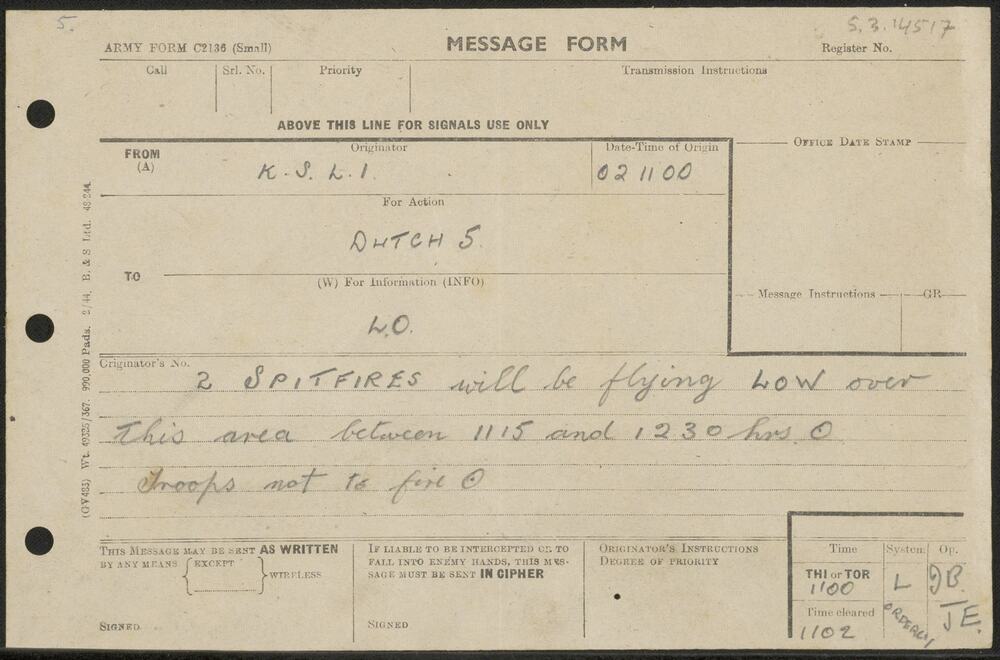 5.
S.3.14517
ARMY FORM C2136 (Small)
MESSAGE FORM
Register No.
Call
Srl. No.
Priority
Transmission Instructions
ABOVE THIS LINE FOR SIGNALS USE ONLY
FROM
(A)
Originator
K.S.L.I.
Date-Time of Origin
021100
OFFICE DATE STAMP
For Action
DUTCH 5.
TO
(W) For Information (INFO)
L.O.
Message Instructions
GR
Originator's No.
2 SPITFIRES will be flying LOW over
this area between 1115 and 1230 hrs. O
Troops not to fire O
THIS MESSAGE MAY BE SENT AS WRITTEN
BY ANY MEANS EXCEPT WIRELESS
SIGNED
IF LIABLE TO BE INTERCEPTED OR TO
FALL INTO ENEMY HANDS, THIS MES-
SAGE MUST BE SENT IN CIPHER
SIGNED
ORIGINATOR'S INSTRUCTIONS
DEGREE OF PRIORITY
Time
System
Op.
THI or TOR
1100
L
JB.
Time cleared
1102
ORDERLY
JE.
(G.V483) Wt. 49325/367. 990,000 Pads. 2/44. B. & S Ltd. 48 244.